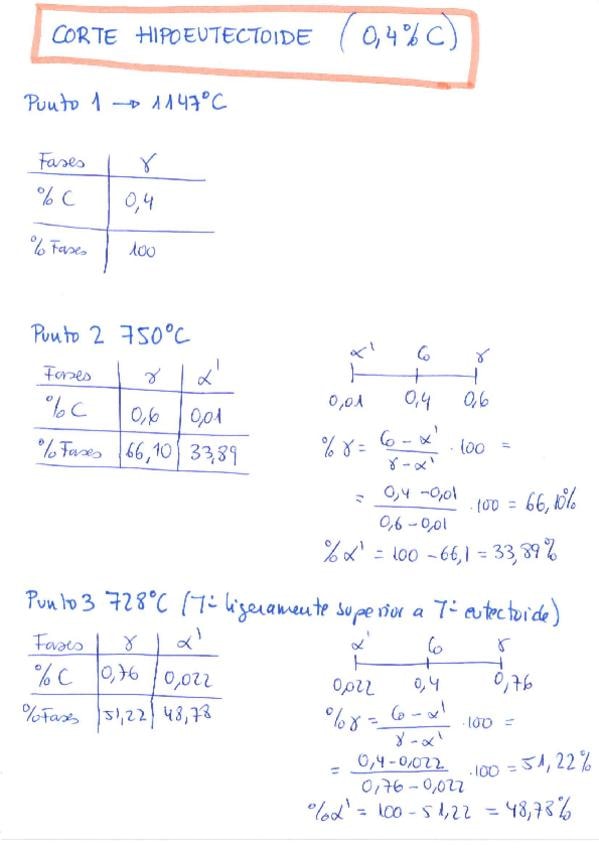 CORTE HIPOEUTECTOIDE (0,4%C)
Punto 1 → 1147°C
Fases | γ
% C | 0,4
% Fases | 100
Punto 2 750°C
Fases | γ | α'
% C | 0,6 | 0,01
% Fases | 66,10 | 33,89
α' C₀ γ
0,01 0,4 0,6
% γ = (C₀ - α') / (γ - α') · 100 =
= (0,4 - 0,01) / (0,6 - 0,01) · 100 = 66,10%
% α' = 100 - 66,1 = 33,89%
Punto 3 728°C (Tª ligeramente superior a Tª eutectoide)
Fases | γ | α'
% C | 0,76 | 0,022
% Fases | 51,22 | 48,78
α' C₀ γ
0,022 0,4 0,76
% γ = (C₀ - α') / (γ - α') · 100 =
= (0,4 - 0,022) / (0,76 - 0,022) · 100 = 51,22%
% α' = 100 - 51,22 = 48,78%